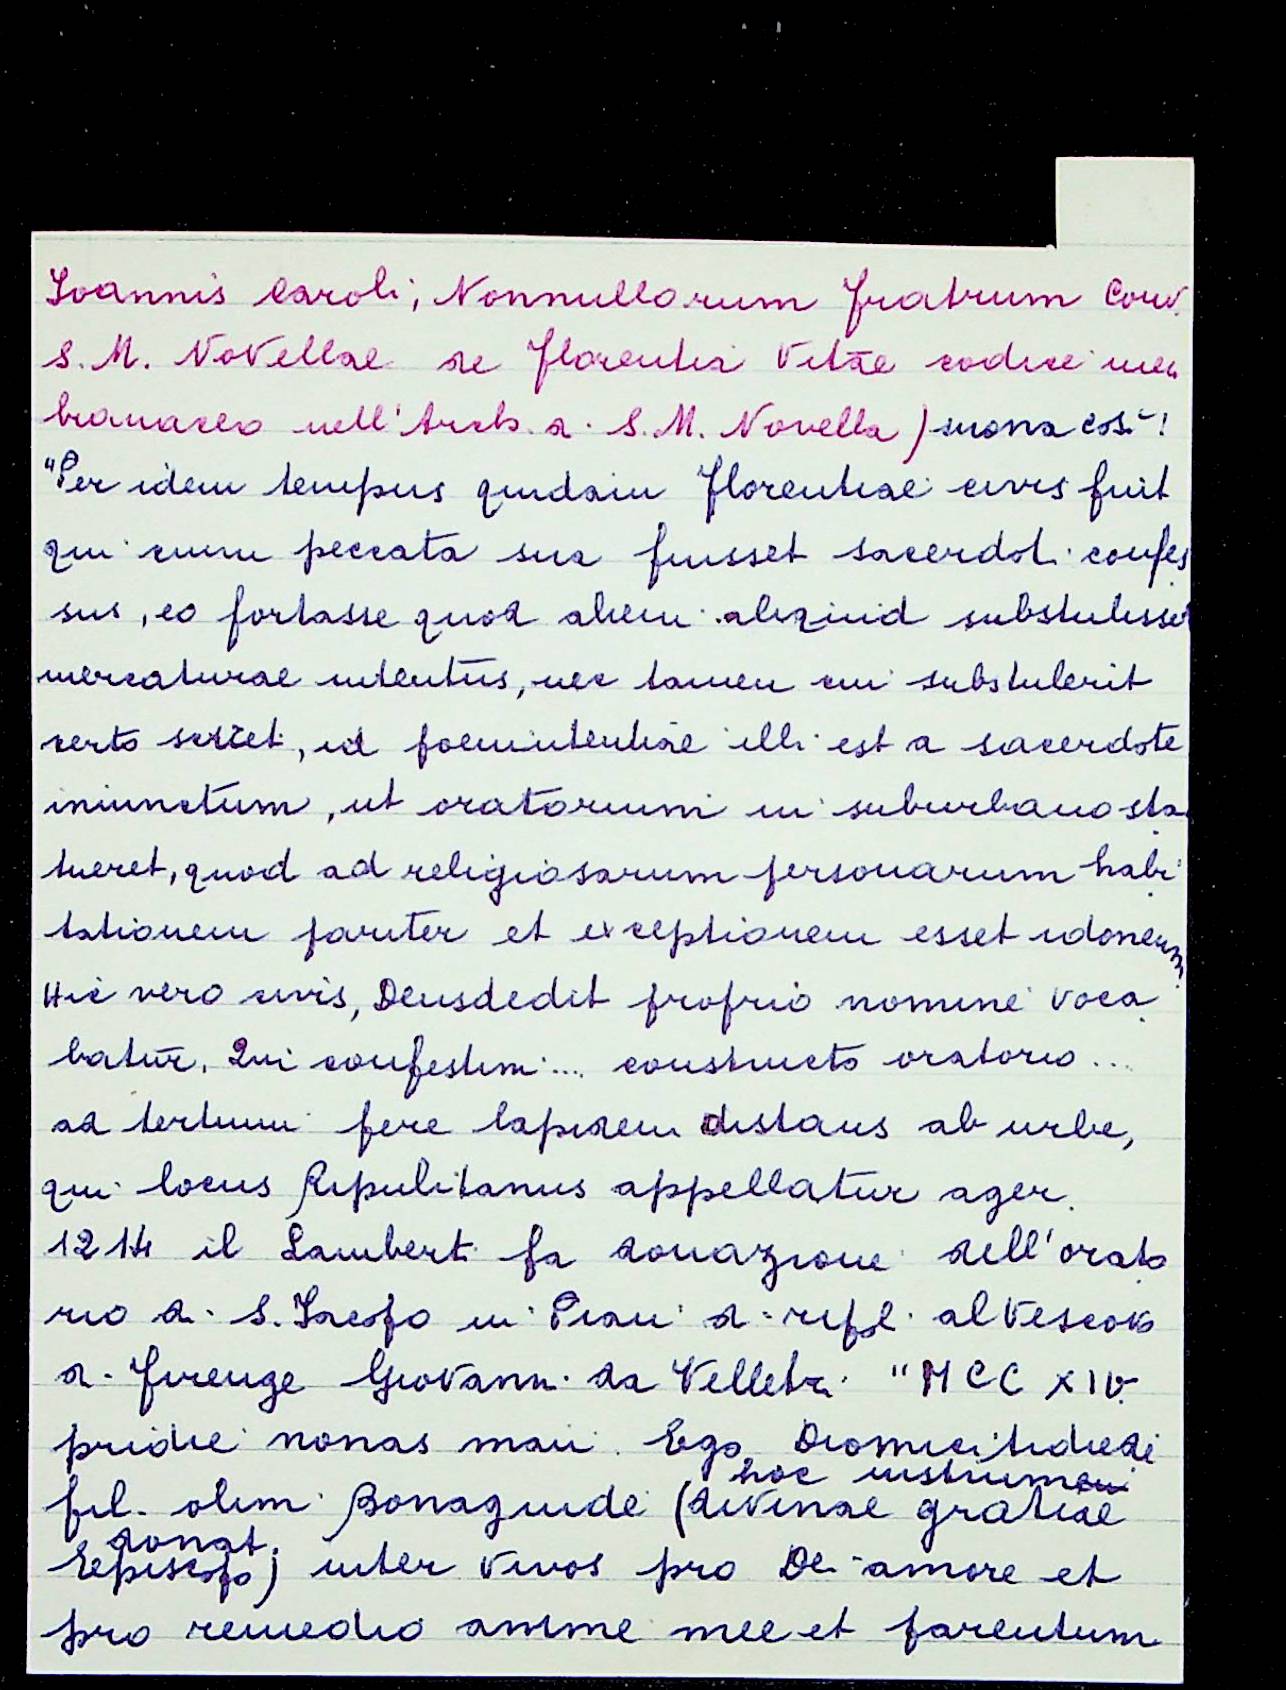 Ioannis Caroli, Nonnullorum fratrum Conv.
S. M. Novellae de Florentia Vitae codice mem
branaceo nell'Arch. di S. M. Novella) suona così!
"Per idem tempus quidam Florentiae civis fuit
qui cum peccata sua fuisset sacerdoti confes
sus, eo fortasse quod alieni aliquid substulisset
mercaturae intentus, nec tamen cui substulerit
certo sciret, id poenitentiae illi est a sacerdote
iniunctum, ut oratorium in suburbano sta
tueret, quod ad religiosarum personarum habi
tationem pariter et exceptionem esset idoneum
Hic vero civis, Deusdedit proprio nomine voca
batur. Qui confestim ... constructo oratorio ...
ad tertium fere lapidem distans ab urbe,
qui locus Ripulitanus appellatur ager.
1214 il Lamberti fa donazione dell'orato
rio di S. Iacopo in Pian di ripoli al Vescovo
di Firenze Giovanni da Velletri "MCCXIV
pridie nonas maii. Ego
hoc
fil. olim Bonaguide (divinae gratiae
donat.
Episcopo) inter vivos pro Dei amore et
pro remedio anime mee et parentum